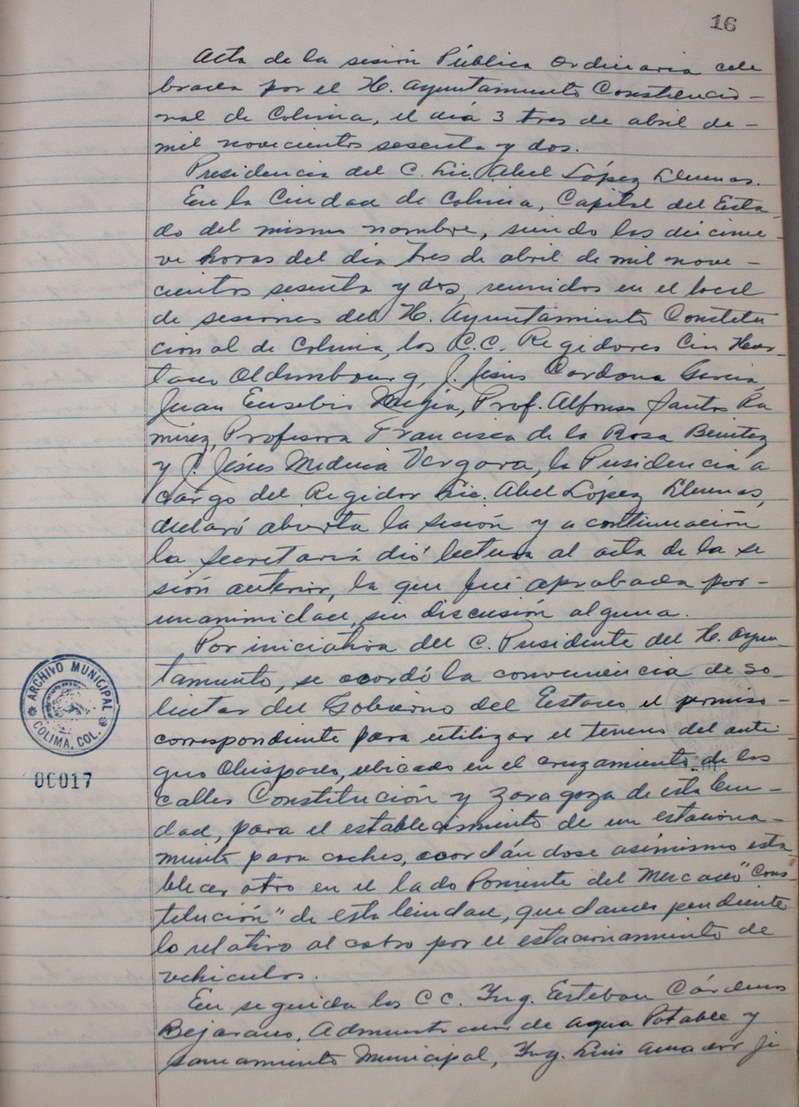 16
Acta de la sesión Pública Ordinaria cele
brada por el H. Ayuntamiento Constitucio-
nal de Colima, el día 3 tres de abril de-
mil novecientos sesenta y dos.
Presidencia del C. Lic. Abel López Llerenas.
En la Ciudad de Colima, Capital del Esta-
do del mismo nombre, siendo las diecinue-
ve horas del día tres de abril de mil nove-
cientos sesenta y dos, reunidos en el local
de sesiones del H. Ayuntamiento Constitu
cional de Colima, los C.C. Regidores
Oldenbourg, J. Jesús Cardona García,
Juan Eusebio Mejía, Prof. Alfonso Santos Ra
mírez, Profesora Francisca de la Rosa Benitez
y J. Jesús Medina Vergara, la Presidencia a
cargo del Regidor Lic. Abel López Llerenas,
declaró abierta la sesión y a continuación
la Secretaría dió lectura al acta de la se
sión anterior, la que fué aprobada por-
unanimidad, sin discusión alguna.
Por iniciativa del C. Presidente del H. Ayun-
tamiento, se acordó la conveniencia de so-
licitar del Gobierno del Estado el permiso-
correspondiente para utilizar el terreno del anti-
guo Obispado, ubicado en el cruzamiento de las
calles Constitución y Zaragoza de esta Ciu-
dad, para el establecimiento de un estaciona-
miento para coches, acordándose asímismo esta
blecer otro en el lado Poniente del Mercado "Cons-
titución" de esta Ciudad, quedando pendiente
lo relativo al cobro por el estacionamiento de
vehículos.
En seguida los CC. Ing. Esteban Cárdenas
Bejarano, Administrador de Agua Potable y
Saneamiento Municipal, Ing. Luis Amador Ji
ARCHIVO MUNICIPAL
COLIMA, COL.
00017